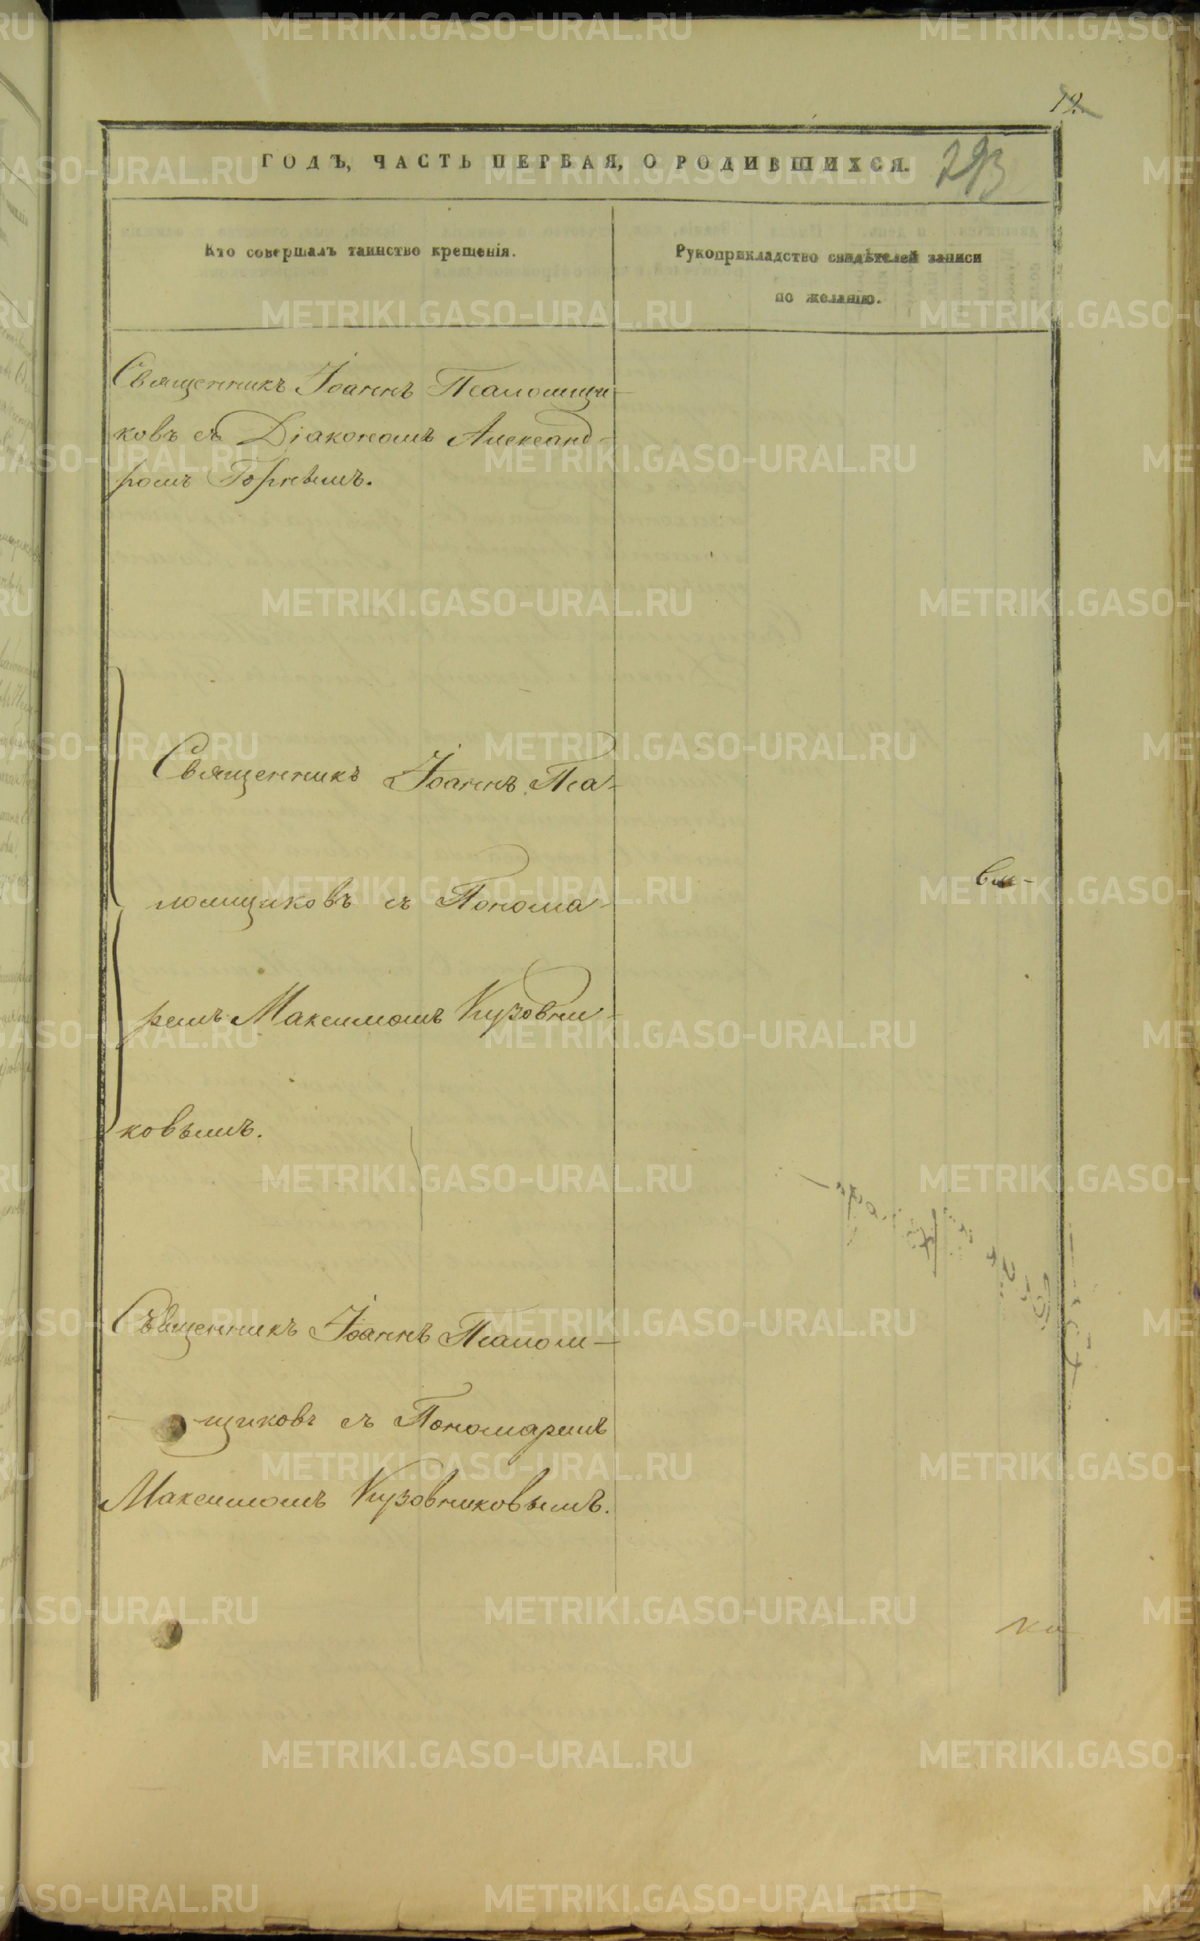 12
ГОДЪ, ЧАСТЬ ПЕРВАЯ, О РОДИВШИХСЯ.
293
Кто совершалъ таинство крещенія.
Рукоприкладство свидѣтелей записи
по желанію.
Священникъ Іоаннъ Псаломщи-
ковъ съ Діакономъ Александ-
ромъ Горнымъ.
Священникъ Іоаннъ Пса-
ломщиковъ съ Понома-
ремъ Максимомъ Кузовни-
ковымъ.
Священникъ Іоаннъ Псалом-
щиковъ съ Пономаремъ
Максимомъ Кузовниковымъ.
METRIKI.GASO-URAL.RU